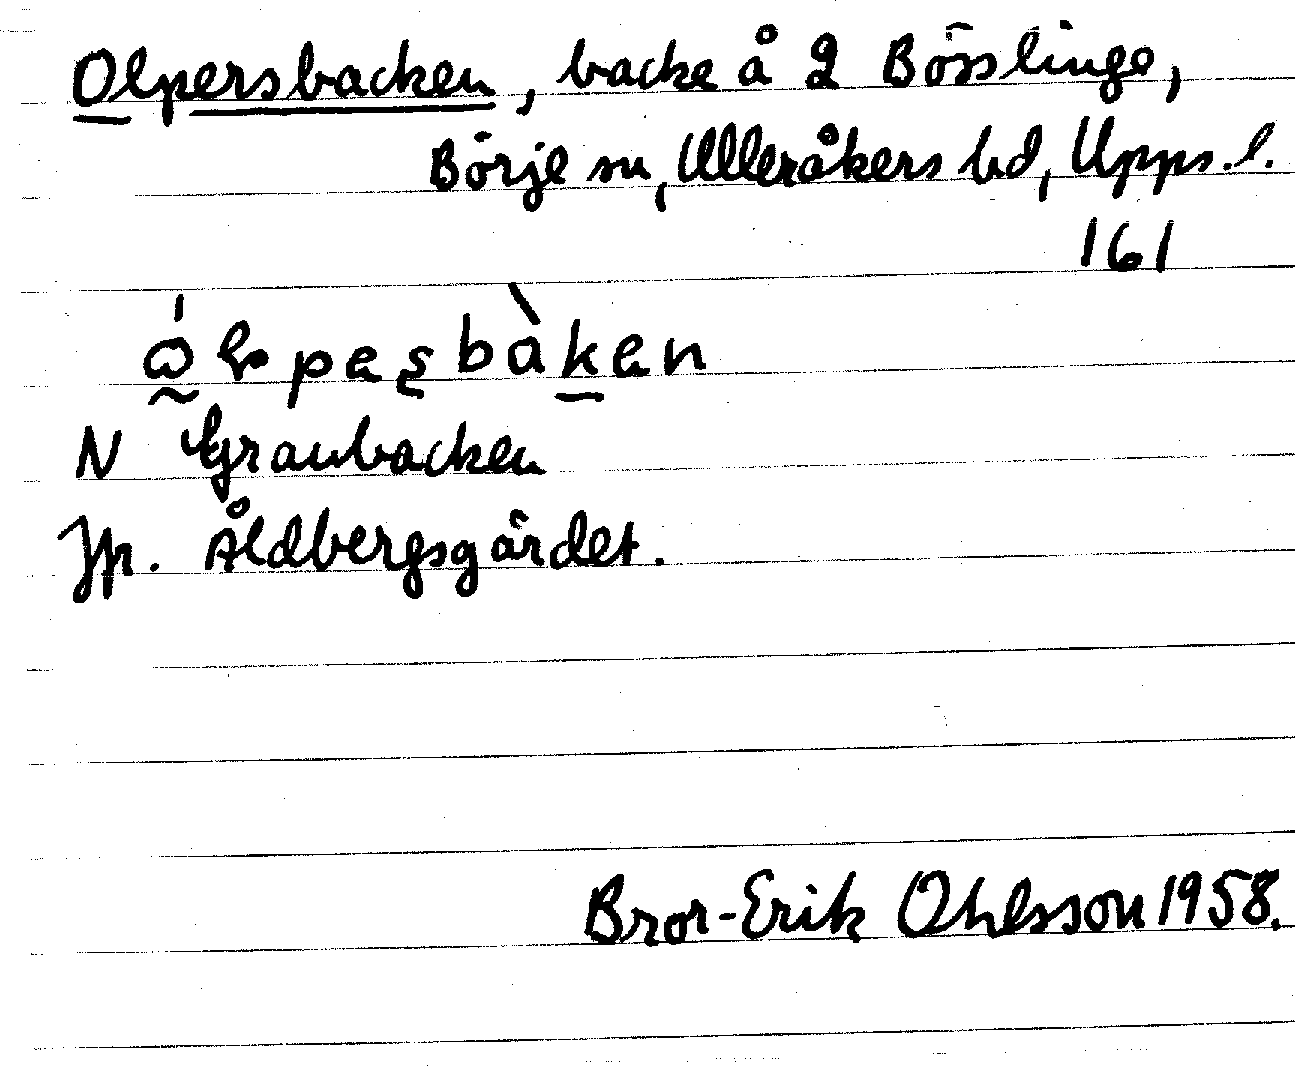 Olpersbacken, backe å 2 Bösslinge,
Börje sn, Ulleråkers hd, Upps.l.
161
N Granbacken
Jfr. Åldbergsgärdet.
Bror-Erik Ohlsson 1958.